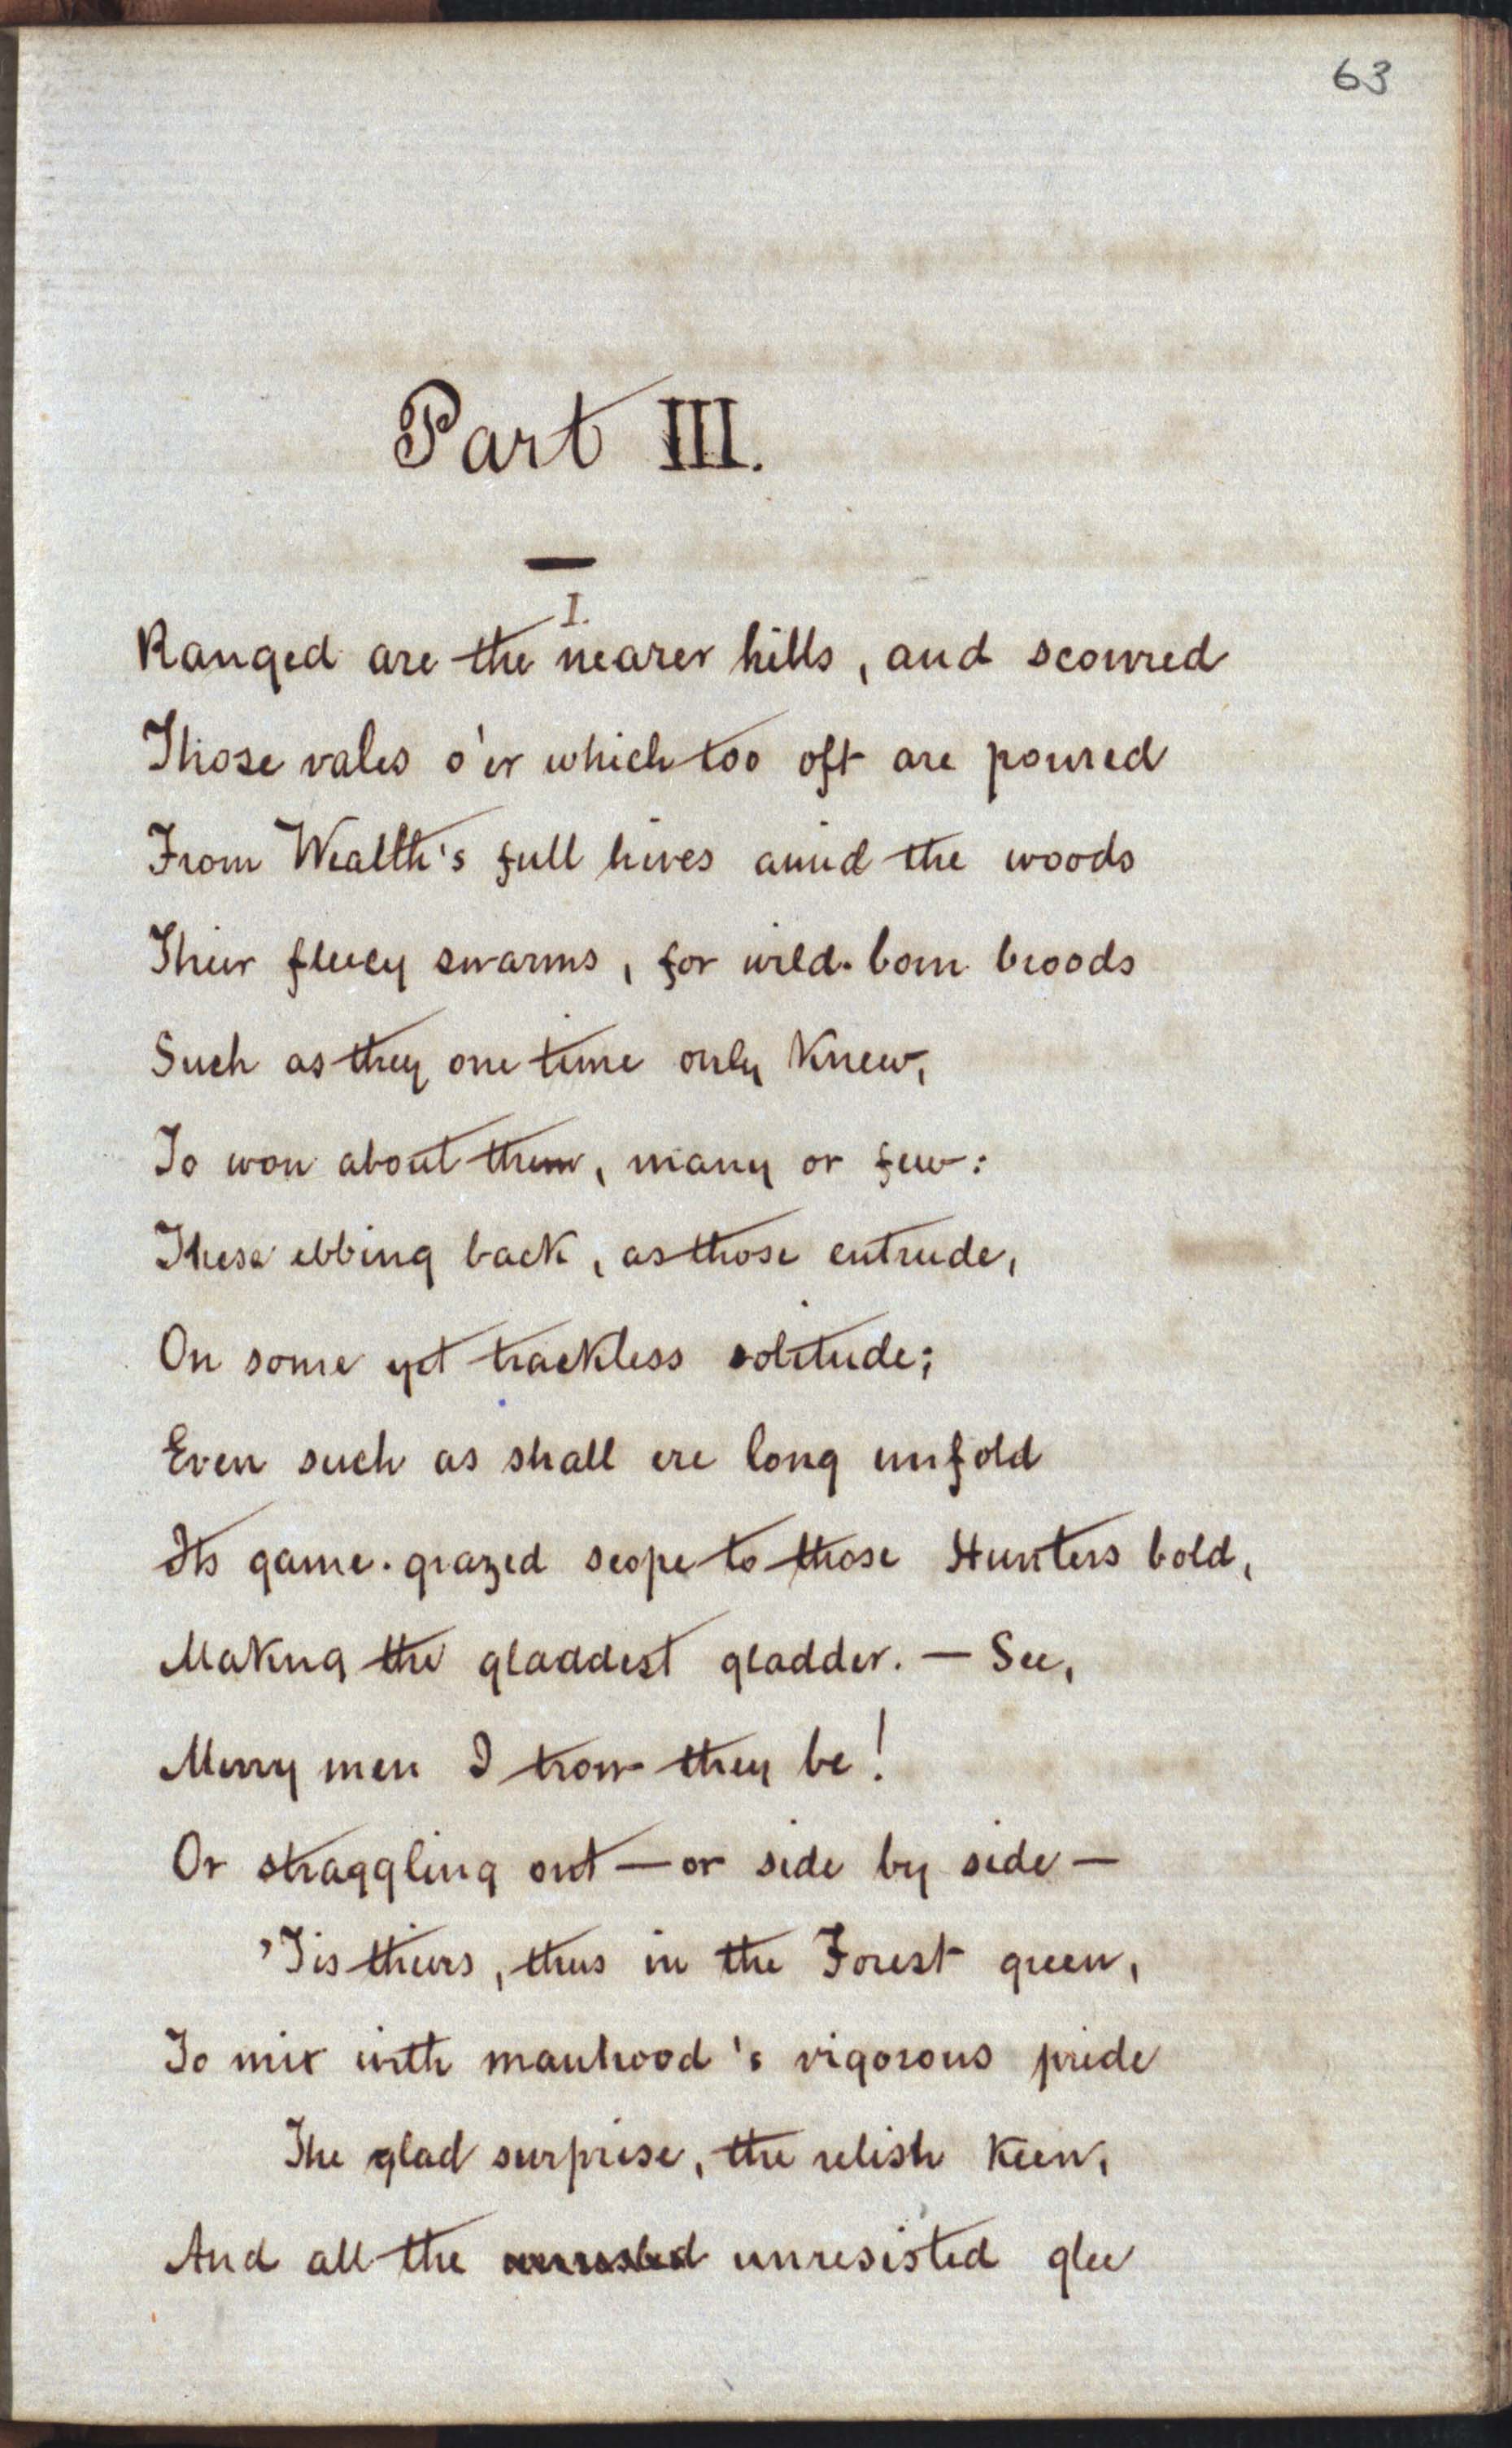 63
Part III.
I.
Ranged are the nearer hills, and scoured
Those vales o'er which too oft are poured
From Wealth's full hives amid the woods
Their fleecy swarms, for wild-born broods
Such as they one time only knew,
To won about them, many or few:
These ebbing back, as those entrude,
On some yet trackless solitude;
Even such as shall ere long unfold
Its game-grazed scope to those Hunters bold,
Making the gladdest gladder. — See,
Merry men I trow they be!
Or straggling out — or side by side —
'Tis theirs, thus in the Forest green,
To mix with manhood's vigorous pride
The glad surprise, the relish keen,
And all the unresisted glee